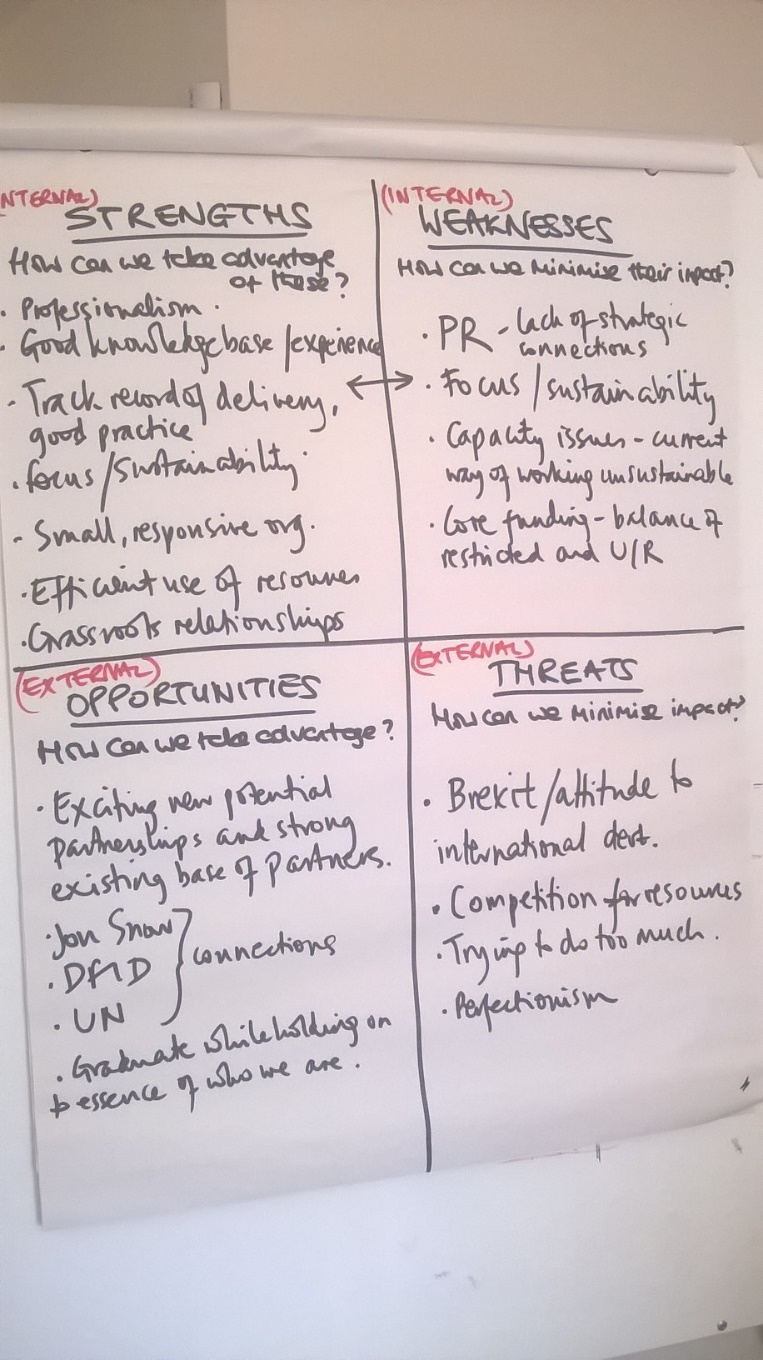 (INTERNAL)
STRENGTHS
How can we take advantage
of these?
• Professionalism.
• Good knowledge base/experience
- Track record of delivery,
good practice
• focus/sustainability
- Small, responsive org.
• Efficient use of resources
• Grassroots relationships
(INTERNAL)
WEAKNESSES
How can we minimise their impact?
• PR - lack of strategic
connections
• Focus/sustainability
• Capacity issues - current
way of working unsustainable
• Core funding - balance of
restricted and U/R
(EXTERNAL)
OPPORTUNITIES
How can we take advantage?
• Exciting new potential
partnerships and strong
existing base of partners.
• Jon Snow
• DFID
• UN
} connections
• Graduate while holding on
to essence of who we are.
(EXTERNAL)
THREATS
How can we minimise impact?
• Brexit/attitude to
international devt.
• Competition for resources
• Trying to do too much.
• Perfectionism